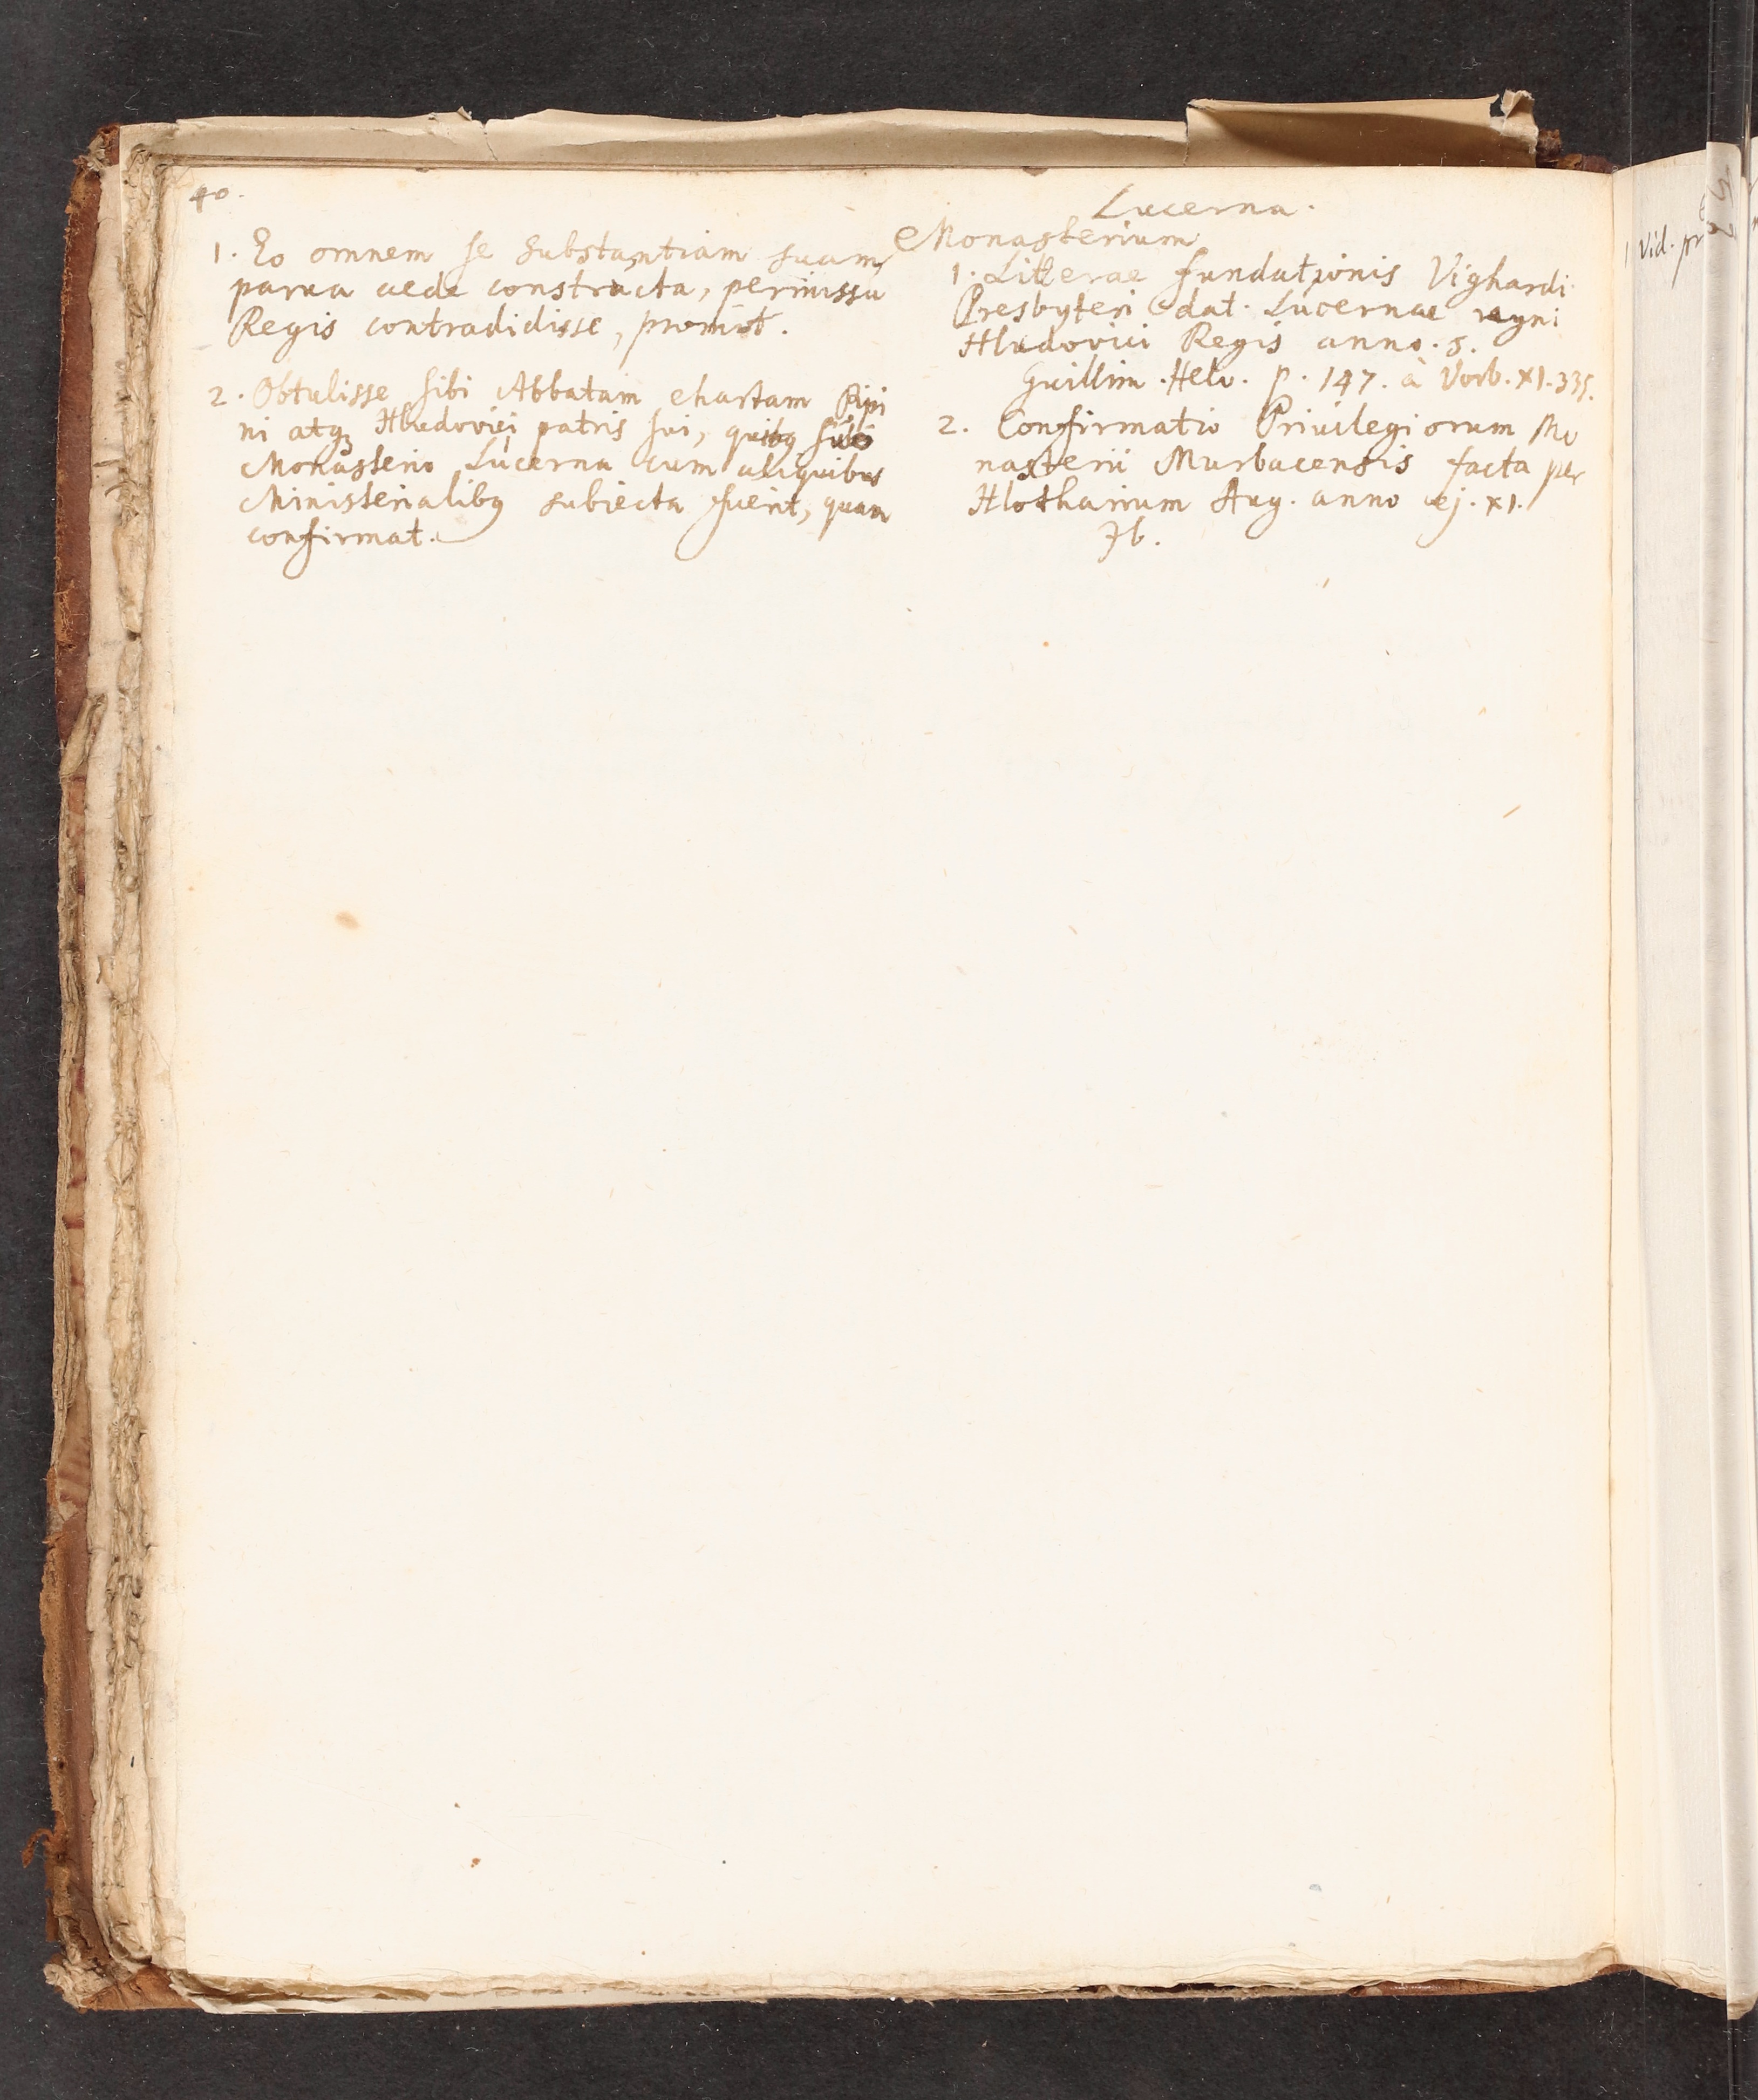 40.
Lucerna.
Monasterium
1. Eo omnem se substantiam suam,
parva aede constructa, permissu
Regis contradidisse, promit.
2. Obtulisse sibi Abbatam chartam Pipi
ni atq₃ Hludovici patris sui, quibq sibi
Monasterio Lucerna cum aliquibus
Ministerialibq subiecta fuerit, quam
confirmat.
1. Litterae fundationis Vighardi
Presbyteri dat. Lucernae regni
Hludovici Regis anno. 5.
Guillim. Helv. p. 147. à Vorb. XI. 335.
2. Confirmatio Privilegiorum Mo
nasterii Murbacensis facta per
Hlotharium Aug. anno ej. XI.
Ib.
1 Vid. pr